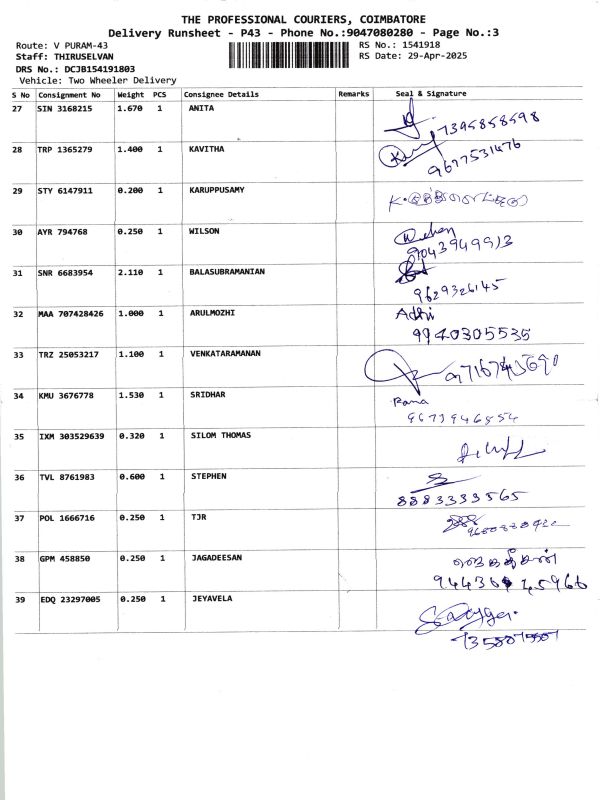 THE PROFESSIONAL COURIERS, COIMBATORE
Delivery Runsheet - P43 - Phone No.:9047080280 - Page No.:3
Route: V PURAM-43 RS No.: 1541918
Staff: THIRUSELVAN RS Date: 29-Apr-2025
DRS No.: DCJB154191803
Vehicle: Two Wheeler Delivery
S No Consignment No Weight PCS Consignee Details Remarks Seal & Signature
27 SIN 3168215 1.670 1 ANITA
7395858598
28 TRP 1365279 1.400 1 KAVITHA
9677531476
29 STY 6147911 0.200 1 KARUPPUSAMY
30 AYR 794768 0.250 1 WILSON
9043949913
31 SNR 6683954 2.110 1 BALASUBRAMANIAN
9629326145
32 MAA 707428426 1.000 1 ARULMOZHI Adhi
9940305535
33 TRZ 25053217 1.100 1 VENKATARAMANAN
34 KMU 3676778 1.530 1 SRIDHAR Rama
35 IXM 303529639 0.320 1 SILOM THOMAS
36 TVL 8761983 0.600 1 STEPHEN
8883333565
37 POL 1666716 0.250 1 TJR
38 GPM 458850 0.250 1 JAGADEESAN ஜெகதீசன்
39 EDQ 23297005 0.250 1 JEYAVELA